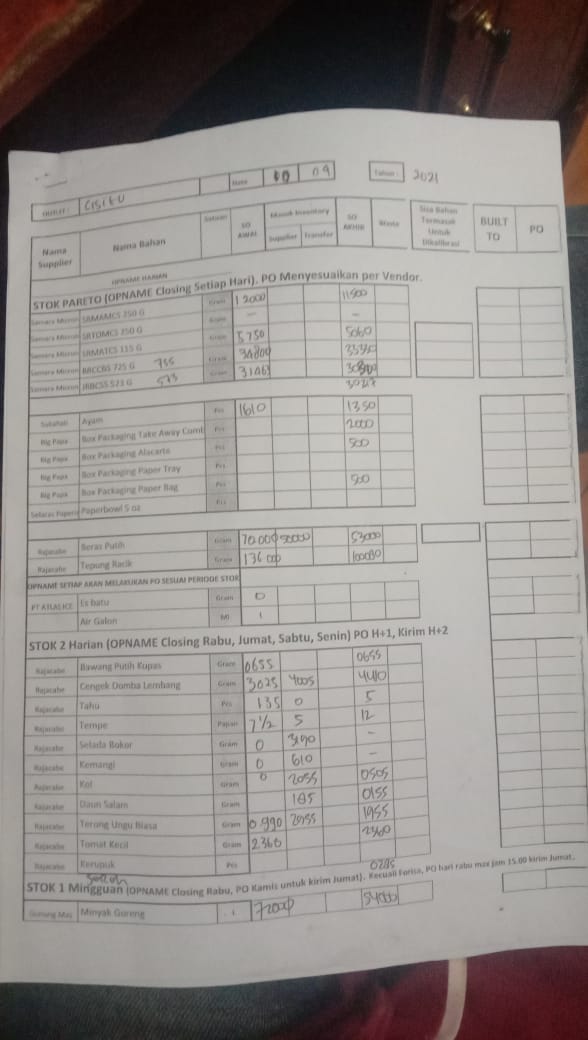 OUTLET : CISITU Date 10 09 Tahun : 2021
Nama Supplier Nama Bahan Satuan SO AWAL Masuk Inventory Supplier Transfer SO AKHIR Waste Sisa Bahan Termasuk Untuk Dikalibrasi BUILT TO PO
OPNAME HARIAN
STOK PARETO (OPNAME Closing Setiap Hari). PO Menyesuaikan per Vendor.
Samara Micron SRMAMCS 250 G Gram 12000 11500
Samara Micron SRTOMCS 250 G Gram - -
Samara Micron SRMATCS 115 G Gram 5750 5060
Samara Micron BRCCBS 725 G 755 Gram 34800
Samara Micron 523 G 573 Gram
Ayam Pcs 1610 1350
Big Papa Box Packaging Take Away Pcs 2000
Big Papa Box Packaging Alacarte Pcs 500
Big Papa Box Packaging Paper Tray Pcs
Big Papa Box Packaging Paper Bag Pcs 500
Paperbowl 5 oz Pcs
Rajacabe Beras Putih Gram 70.000 50000 53000
Rajacabe Tepung Racik Gram 136000 100000
OPNAME SETIAP AKAN MELAKUKAN PO SESUAI PERIODE STOK
PT ATLALICE Es batu Gram 0
Air Galon 1
STOK 2 Harian (OPNAME Closing Rabu, Jumat, Sabtu, Senin) PO H+1, Kirim H+2
Rajacabe Bawang Putih Kupas Gram 0655 0655
Rajacabe Cengek Domba Lembang Gram 3025 4005 4410
Rajacabe Tahu Pcs 135 0 5
Rajacabe Tempe Papan 7½ 5 12
Rajacabe Selada Bokor Gram 0 3190 -
Rajacabe Kemangi Gram 0 610 -
Rajacabe Kol Gram 0 2055 0505
Rajacabe Daun Salam Gram 185 0155
Rajacabe Terong Ungu Biasa Gram 0.990 2955 1955
Rajacabe Tomat Kecil Gram 2360 2360
Rajacabe Kerupuk Pcs
0285
STOK 1 Mingguan (OPNAME Closing Rabu, PO Kamis untuk kirim Jumat). Kecuali Forisa, PO hari rabu max jam 15.00 kirim Jumat.
Gunung Mas Minyak Goreng 72000 54000